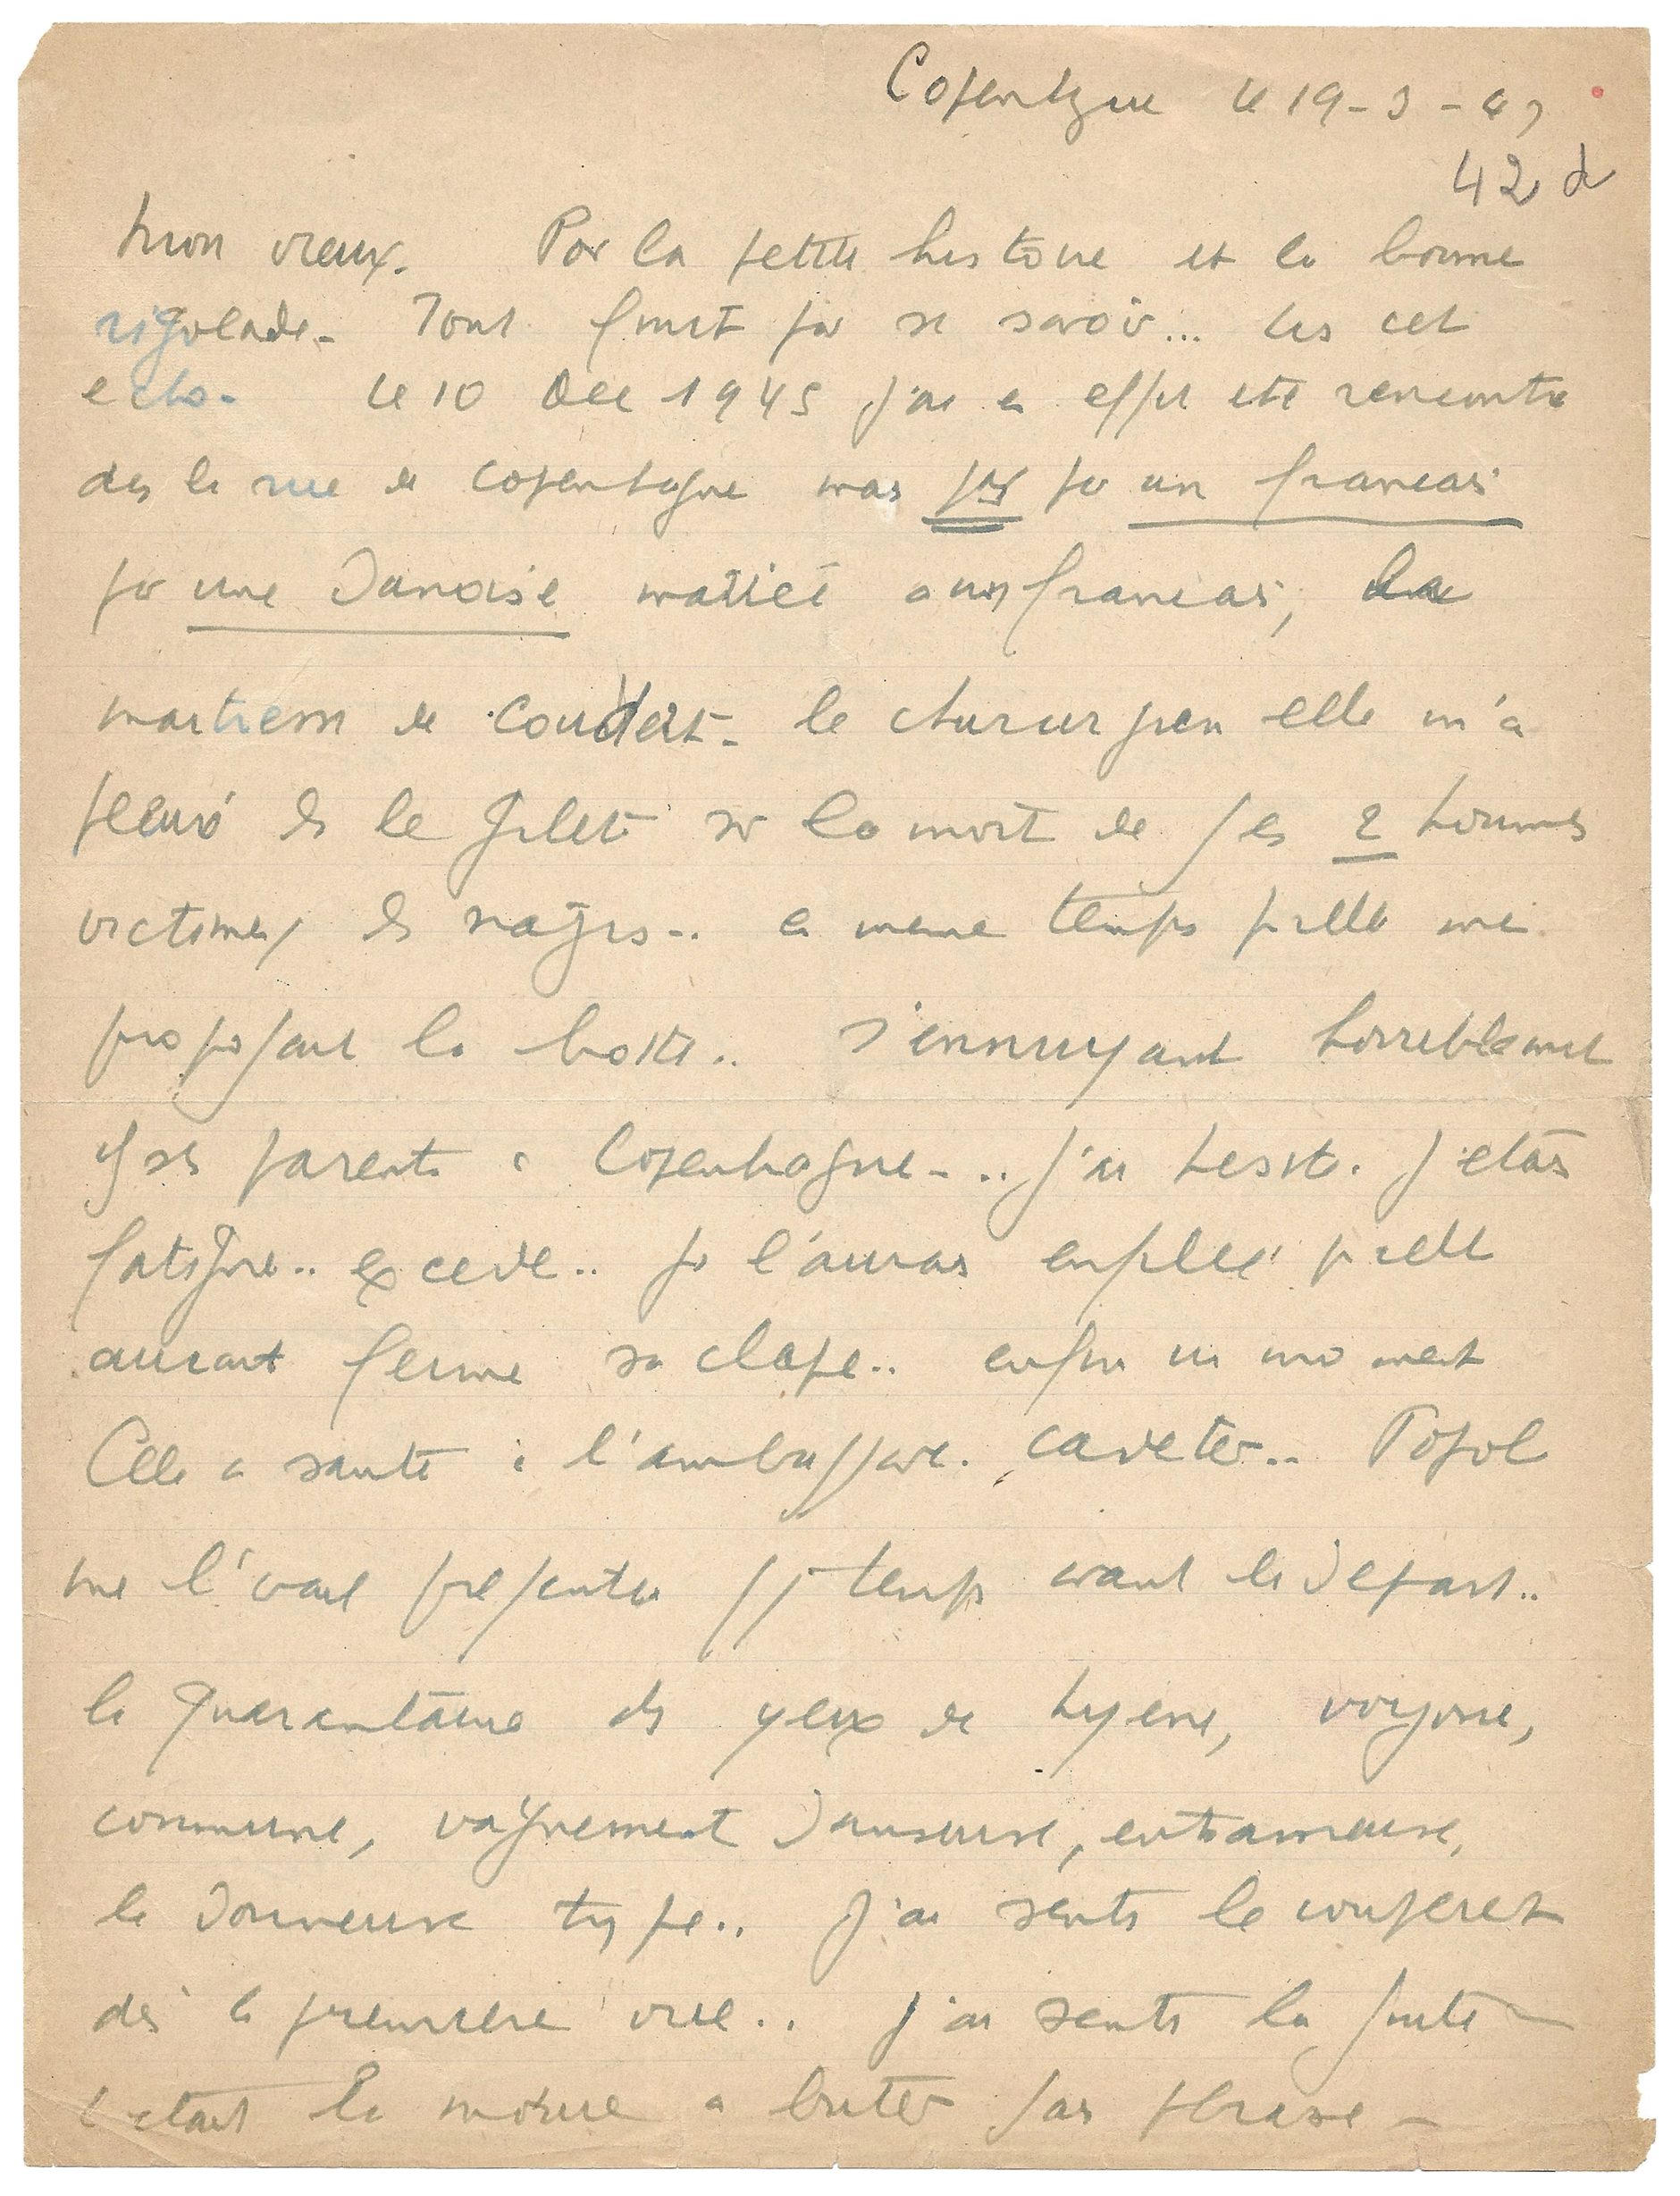 Copenhague le 19-3-47
42 d
Mon vieux. Por la petite histoire et la bonne
rigolade - Tout finit par se savoir... lis cet
echo. Le 10 Dec 1945 j'ai en effet été rencontré
ds la rue de Copenhague mais pas par un francais
par une Danoise mariée a un francais,
maitresse de Coudert - le chirurgien elle m'a
pleuré ds le gilet sur la mort de ses 2 hommes
victimes ds nazis.. en meme temps qu'elle me
proposait la botte.. S'ennuyant horriblement
chez ses parents à Copenhague... j'ai hesité. J'étais
fatigué.. excédé.. je l'aurais enfilée qu'elle
aurait fermé sa clape.. enfin un moment
Elle a sauté à l'ambassade. caveter.. Popol
me l'avait présentée qq temps avant le Départ..
la quarantaine ds yeux de hyene, voyone,
commune, vaguement Danseuse, entraineuse,
la Donneuse type.. J'ai senti le couperet
dès la première vue.. J'ai senti la fuite -
C'etait la moure a buter sas phrase -